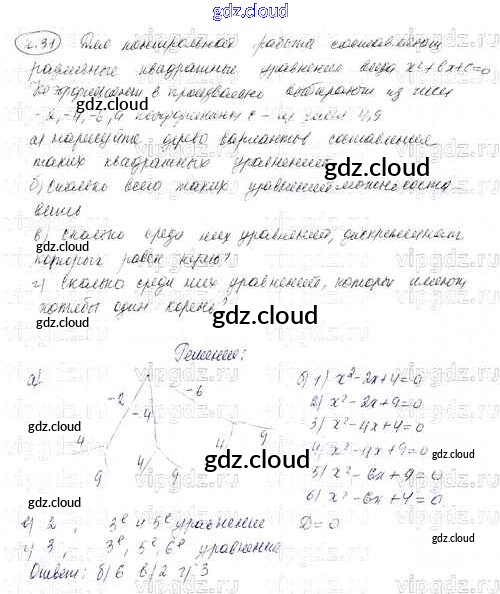 gdz.cloud
2.31 Для контрольной работы составляют
различные квадратные уравнения вида x²+bx+c=0
Коэффициент b произвольно выбирают из чисел
-2, -4, -6, а коэффициент c - из чисел 4,9
а) нарисуйте дерево вариантов составления
таких квадратных уравнений
gdz.cloud
б) сколько всего таких уравнений можно соста-
вить
в) сколько среди них уравнений, дискриминант
которых равен нулю?
г) сколько среди них уравнений, которые имеют
хотя бы один корень?
gdz.cloud
Решение:
а)
-2 -4 -6
4 9 4 9 4 9
б) 1) x²-2x+4=0
2) x²-2x+9=0
3) x²-4x+4=0
4) x²-4x+9=0
5) x²-6x+9=0
6) x²-6x+4=0
gdz.cloud
gdz.cloud
в) 2, 3е и 5е уравнение D=0
г) 3, 3е, 5е, 6е уравнение
Ответ: б) 6 в) 2 г) 3
gdz.cloud